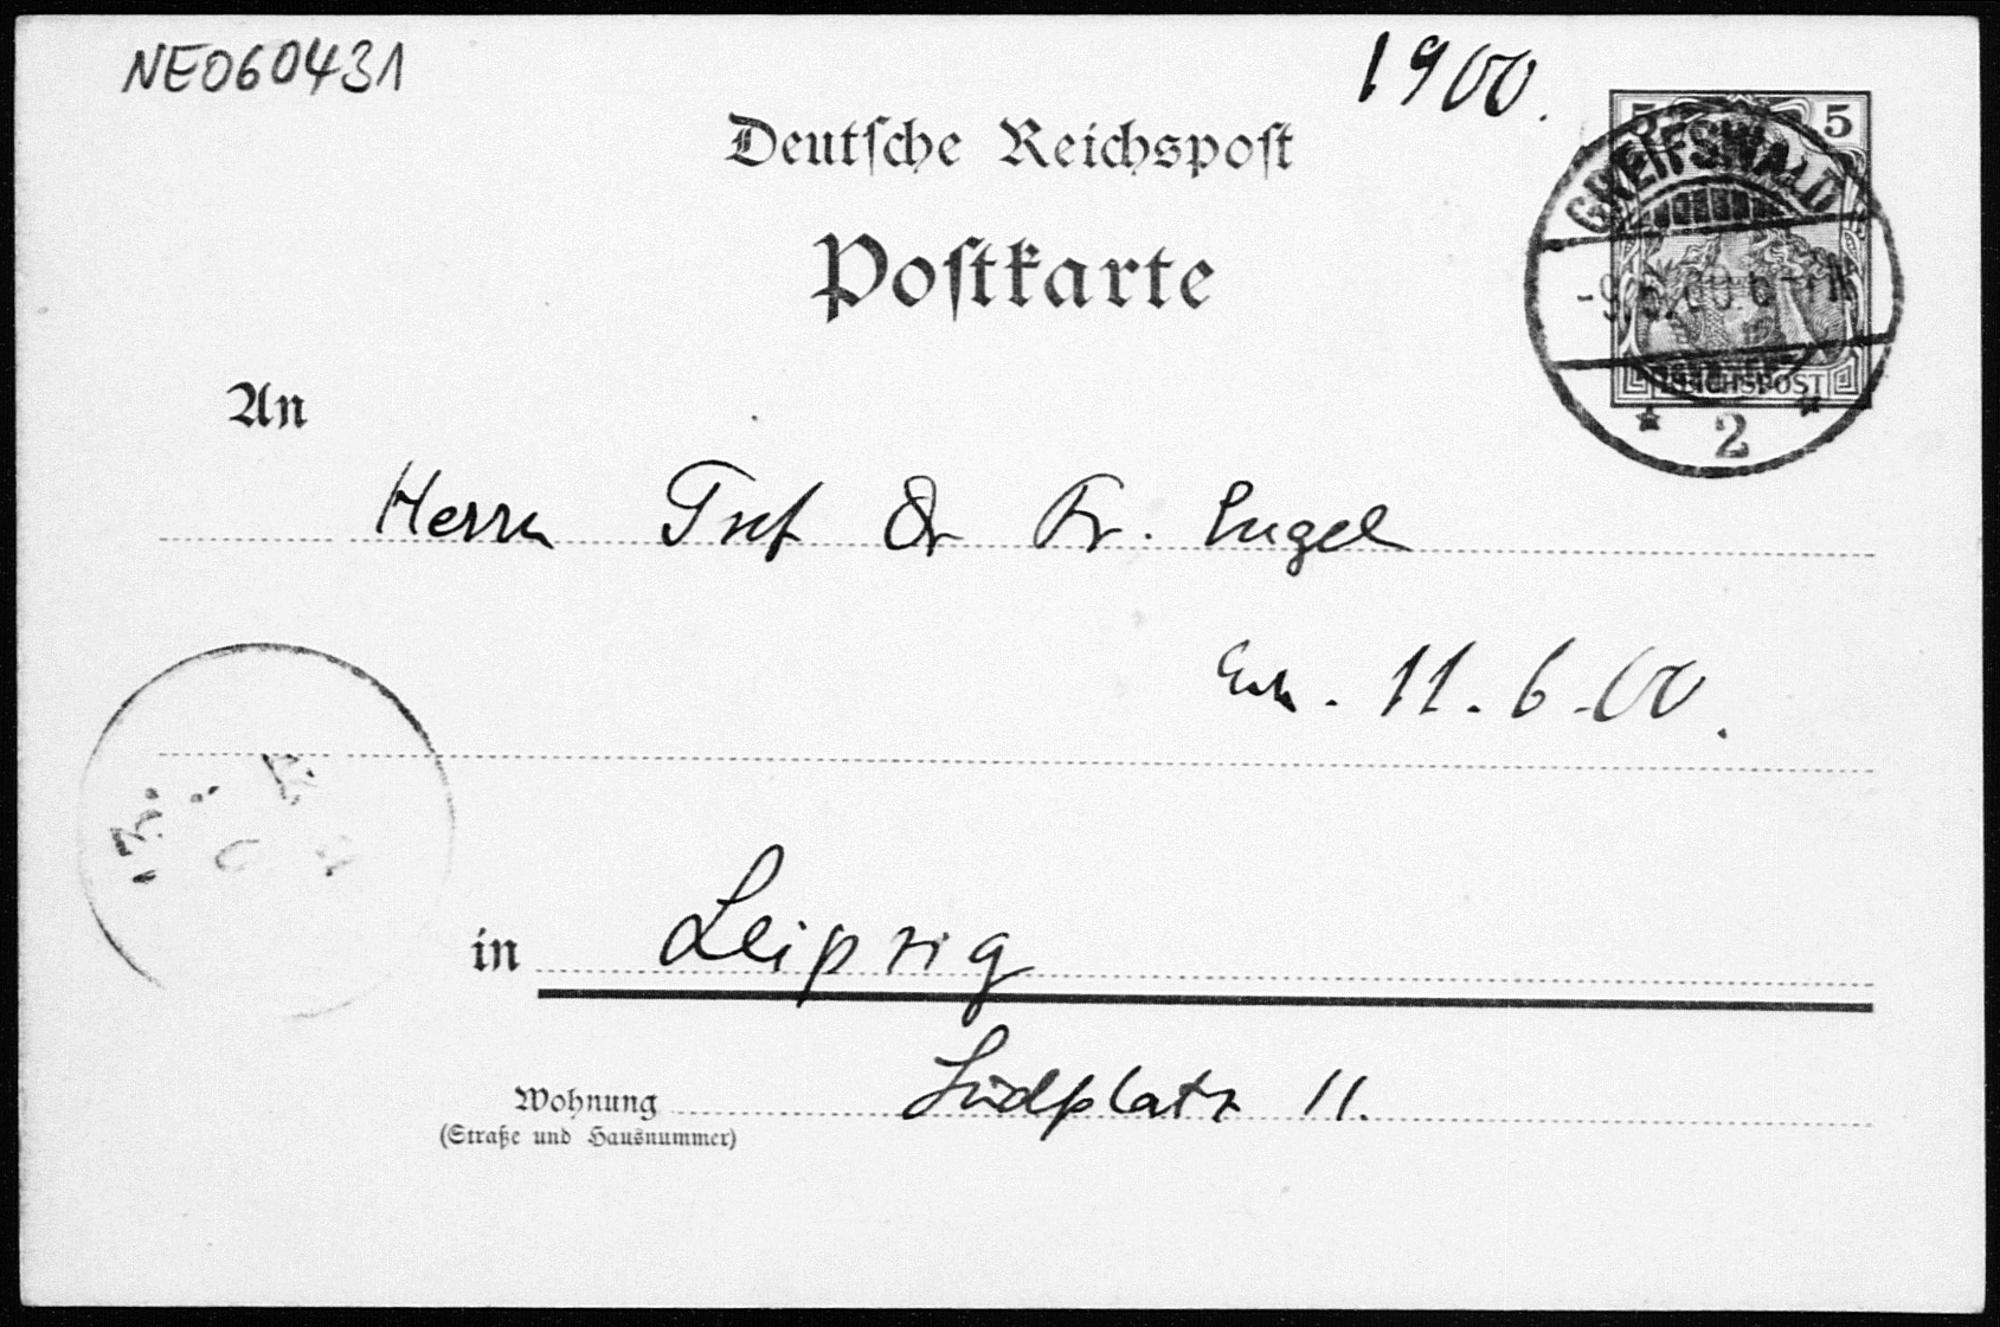 NE060431
1900.
Deutsche Reichspost
Postkarte
5 5
GREIFSWALD
REICHSPOST
* 2 *
An
Herrn Prof Dr Fr. Engel
11.6.00.
in Leipzig
Wohnung Südplatz 11.
(Straße und Hausnummer)